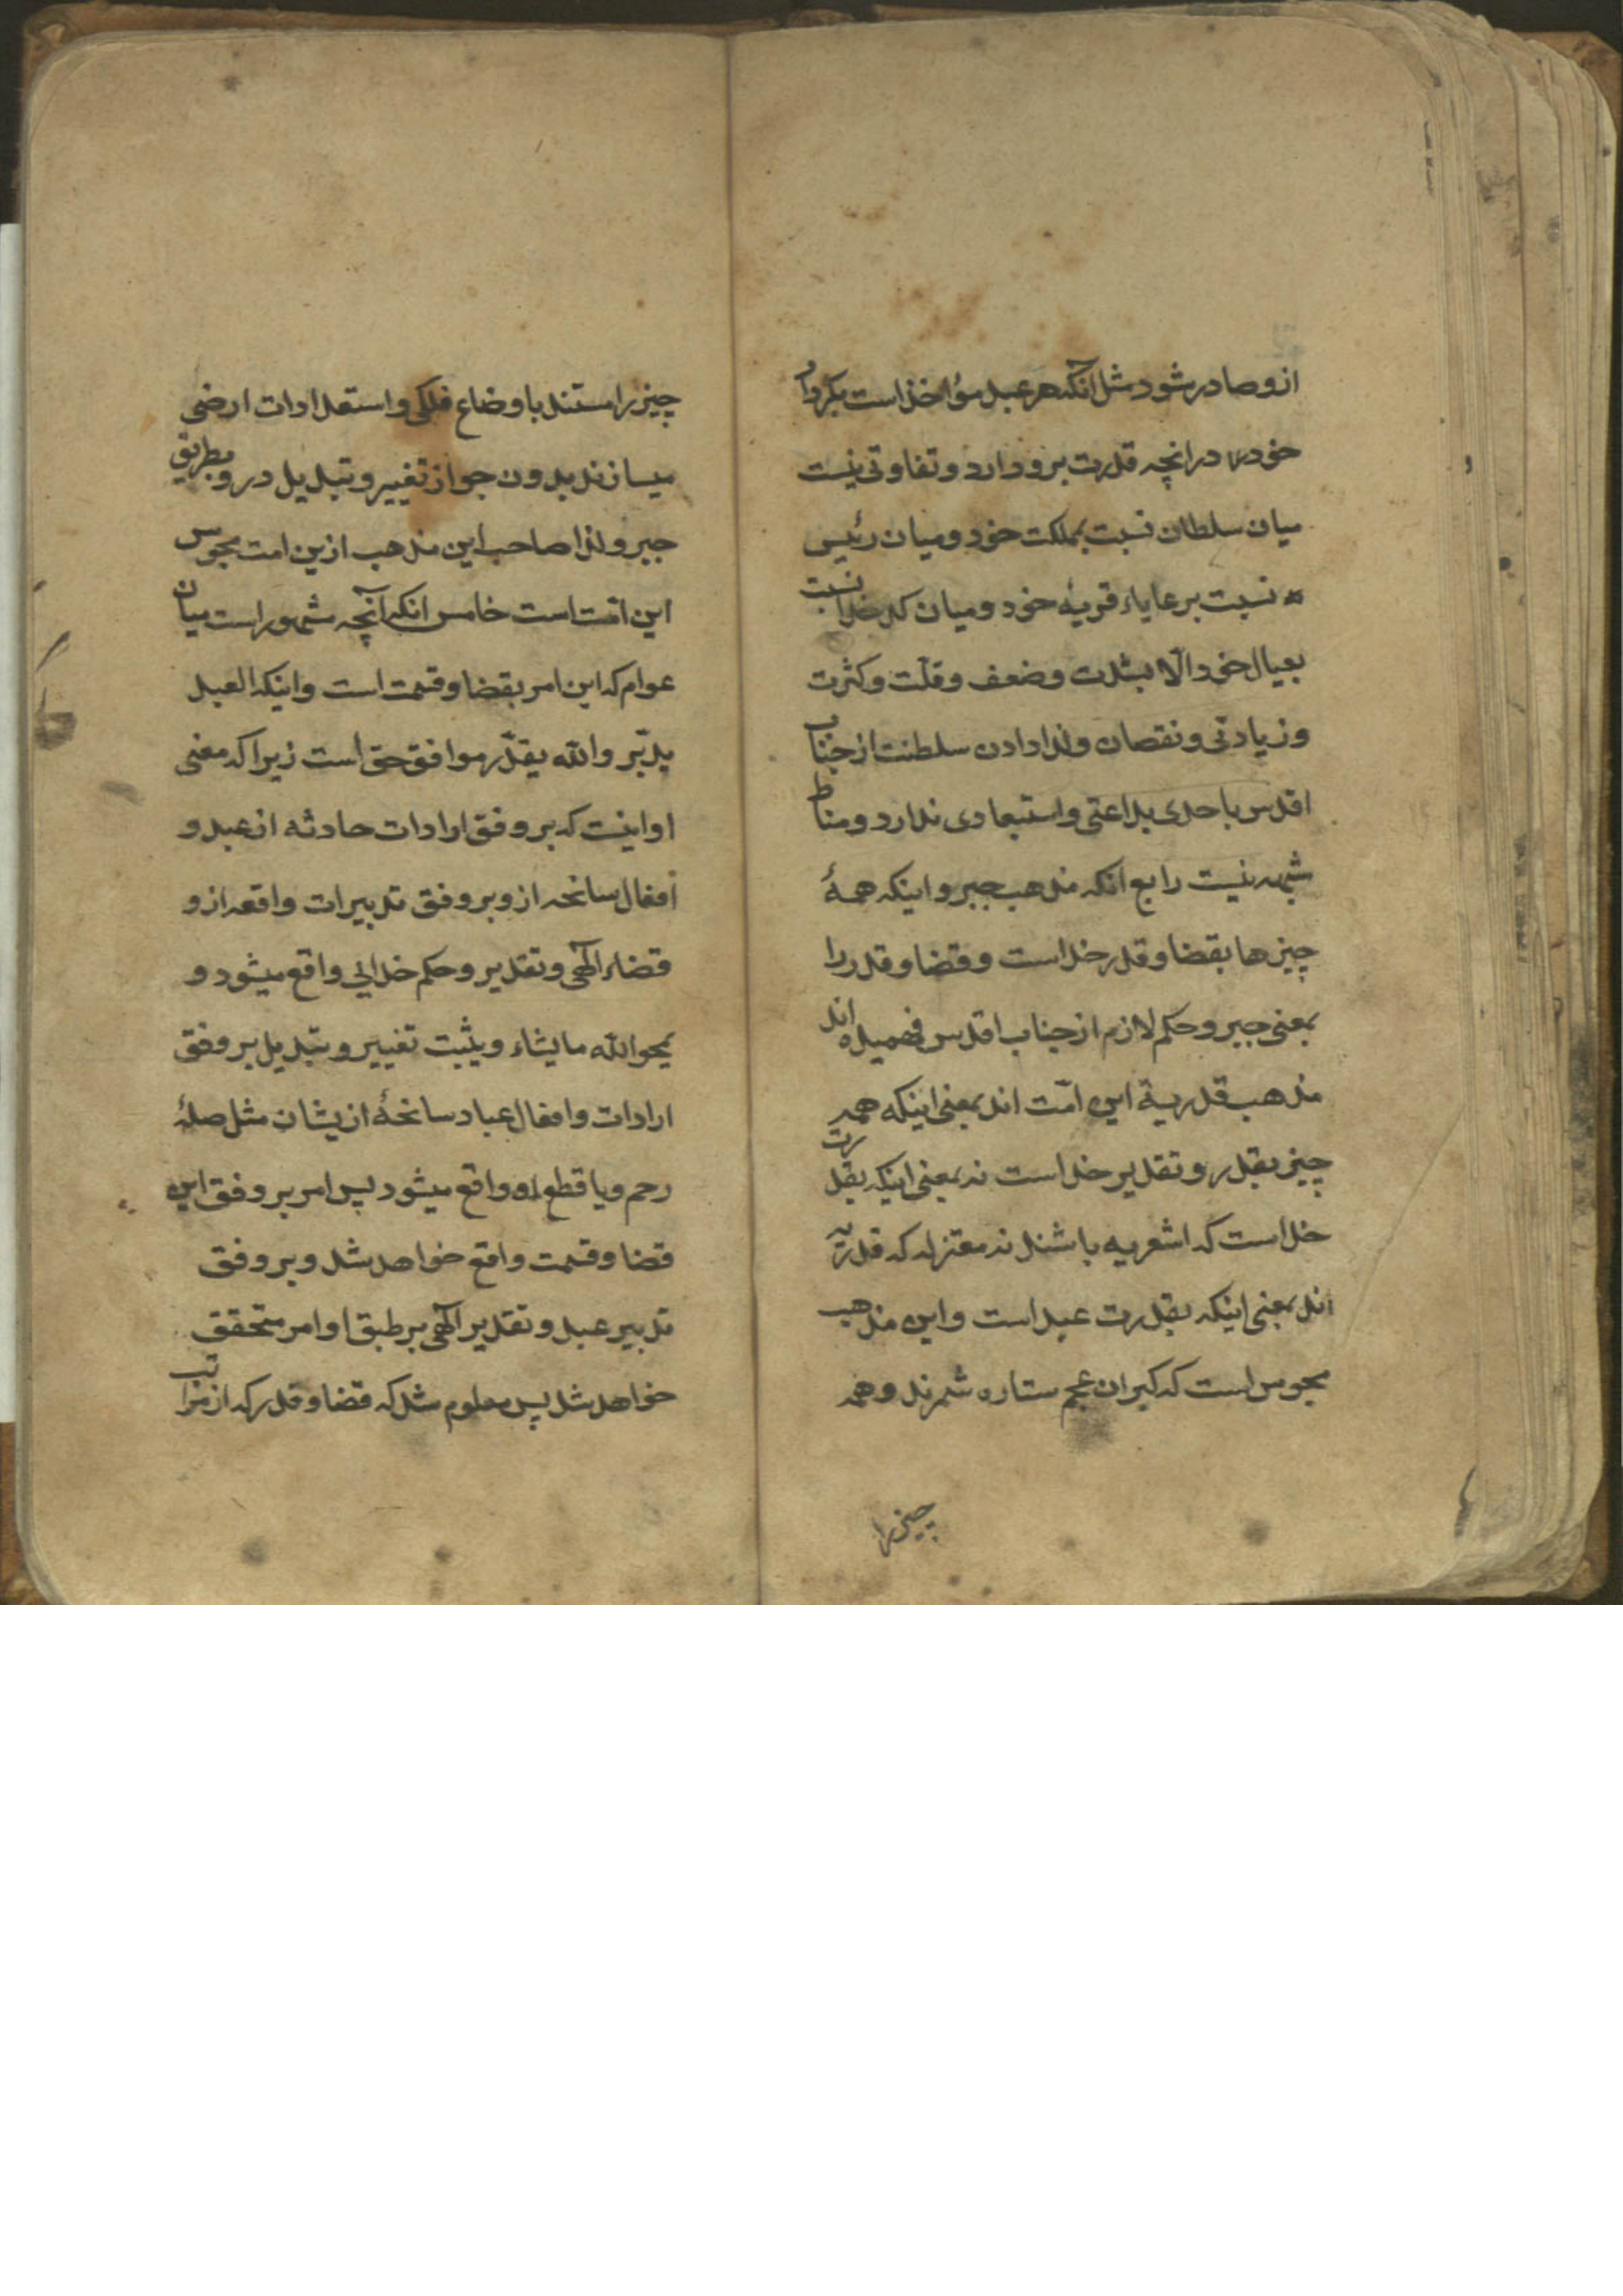 ازو صادر شود مثل آنکه هر عبد مؤاخذ است بکردار
خود در آنچه قدرت برو دارد و تفاوتی نیست
میان سلطان نسبت بمملکت خود و میان رئیس
نسبت برعایاء قریهٔ خود و میان کدخدا نسبت
بعیال خود الّا بشدت وضعف وقلّت وکثرت
وزیادتی ونقصان ولذا دادن سلطنت از جناب
اقدس باحدی بداعتی واستبعادی ندارد ومناط
شبهه نیست رابع انکه مذهب جبر و اینکه همهٔ
چیزها بقضا وقدر خداست وقضا وقدر را
بمعنی جبر وحکم لازم از جناب اقدس فهمیده اند
مذهب قدریهٔ این امّت اند بمعنی اینکه همه
چیز بقدر وتقدیر خداست نه بمعنی اینکه بقدرت
خداست که اشعریه باشند نه معتزله که قدریّه
اند بمعنی اینکه بقدرت عبد است واین مذهب
مجوس است که کبران عجم ستاره شمرند وهمه
چیز را
چیز را مستند باوضاع فلکی واستعدادات ارضی
میسازند بدون جواز تغییر وتبدیل درو وبطریق
جبر ولذا صاحب این مذهب ازین امت مجوس
این امّت است خامس انکه آنچه مشهور است میان
عوام که این امر بقضا وقسمت است واینکه العبد
یدبّر والله یقدّر موافق حق است زیرا که معنی
او اینست که بر وفق ارادات حادثه از عبد و
افعال سانحه ازو بر وفق تدبیرات واقعه ازو
قضاء الٓهی وتقدیر وحکم خدائی واقع میشود و
یمحو الله ما یشاء ویثبت تغییر وتبدیل بر وفق
ارادات وافعال عباد سانحهٔ ازیشان مثل صلهٔ
رحم ویا قطع او واقع میشود پس امر بر وفق این
قضا وقسمت واقع خواهد شد وبر وفق
تدبیر عبد وتقدیر الٓهی بر طبق او امر متحقق
خواهد شد پس معلوم شد که قضا وقدر که از مراتب